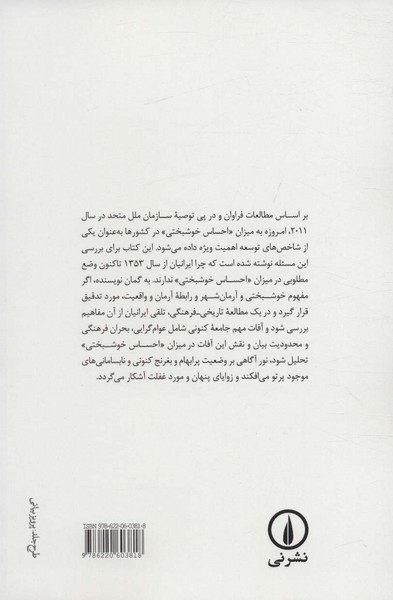 بر اساس مطالعات فراوان و در پی توصیهٔ سازمان ملل متحد در سال
۲۰۱۱، امروزه به میزان «احساس خوشبختی» در کشورها به‌عنوان یکی
از شاخص‌های توسعه اهمیت ویژه داده می‌شود. این کتاب برای بررسی
این مسئله نوشته شده است که چرا ایرانیان از سال ۱۳۵۳ تاکنون وضع
مطلوبی در میزان «احساس خوشبختی» ندارند. به گمان نویسنده، اگر
مفهوم خوشبختی و آرمان‌شهر و رابطهٔ آرمان و واقعیت، مورد تدقیق
قرار گیرد و در یک مطالعهٔ تاریخی-فرهنگی، تلقی ایرانیان از آن مفاهیم
بررسی شود و آفات مهم جامعهٔ کنونی شامل عوام‌گرایی، بحران فرهنگی
و محدودیت بیان و نقش این آفات در میزان «احساس خوشبختی»
تحلیل شود، نور آگاهی بر وضعیت پرابهام و بغرنج کنونی و نابسامانی‌های
موجود پرتو می‌افکند و زوایای پنهان و مورد غفلت آشکار می‌گردد.
طرح جلد: پرویز بیانی
ISBN 978-622-06-0381-8
9 786220 603818
نشرنی